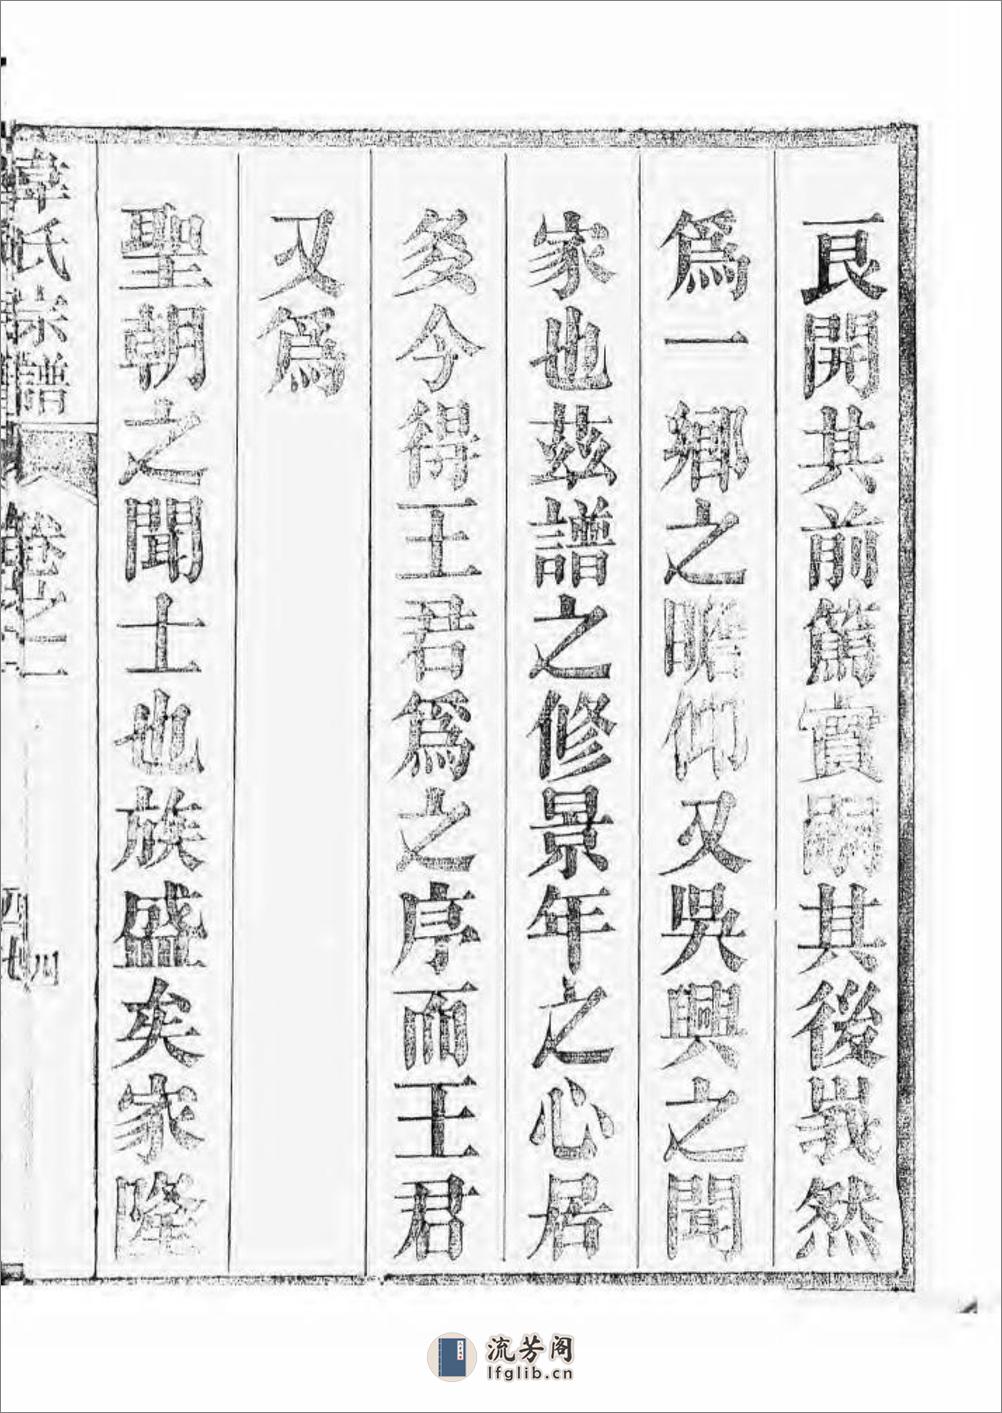 艮開其前篤實嗣其後峩然
為一鄉之瞻仰又吳興之聞
家也茲譜之修景年之心居
多今得王君為之序而王君
又為
聖朝之聞士也族盛矣家隆
韋氏宗譜 卷之二 四
流芳阁
lfglib.cn